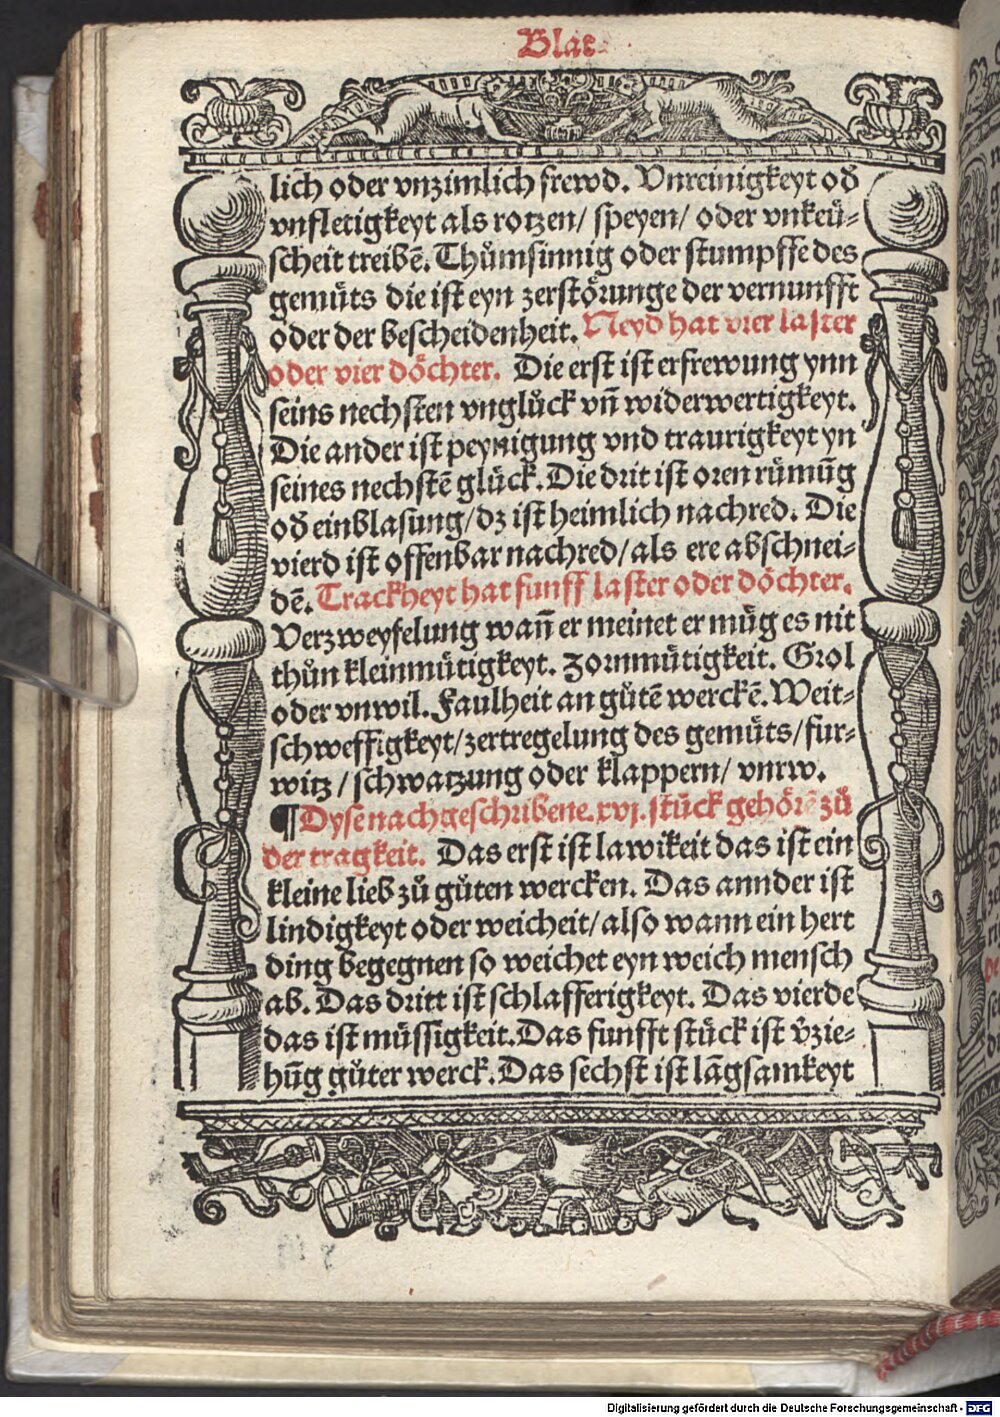 Blat
lich oder vnzimlich frewd. Vnreinigkeyt od̄
vnfletigkeyt als rotzen/ speyen/ oder vnkeü-
scheit treibē. Thůmsinnig oder stumpffe des
gemüts die ist eyn zerstörunge der vernunfft
oder der bescheidenheit. Neyd hat vier laster
oder vier döchter. Die erst ist erfrewung ynn
seins nechsten vnglück vn̄ widerwertigkeyt.
Die ander ist peynigung vnd traurigkeyt yn
seines nechstē glück. Die drit ist oren rümūg
od̄ einblasung/ dz ist heimlich nachred. Die
vierd ist offenbar nachred/ als ere abschnei-
dē. Trackheyt hat funff laster oder döchter.
Verzweyfelung wan̄ er meinet er müg es nit
thůn kleinmütigkeyt. Zornmütigkeit. Grol
oder vnwil. Faulheit an gůtē werckē. Weit-
schweffigkeyt/ zertregelung des gemüts/ fur-
witz / schwatzung oder klappern/ vnrw.
¶ Dyse nachgeschribene .xvj. stück gehörē zů
der tragkeit. Das erst ist lawikeit das ist ein
kleine lieb zů gůten wercken. Das annder ist
lindigkeyt oder weicheit/ also wann ein hert
ding begegnen so weichet eyn weich mensch
ab. Das dritt ist schlafferigkeyt. Das vierde
das ist müssigkeit. Das funfft stück ist v̄zie-
hūg gůter werck. Das sechst ist lāgsamkeyt
Digitalisierung gefördert durch die Deutsche Forschungsgemeinschaft - DFG